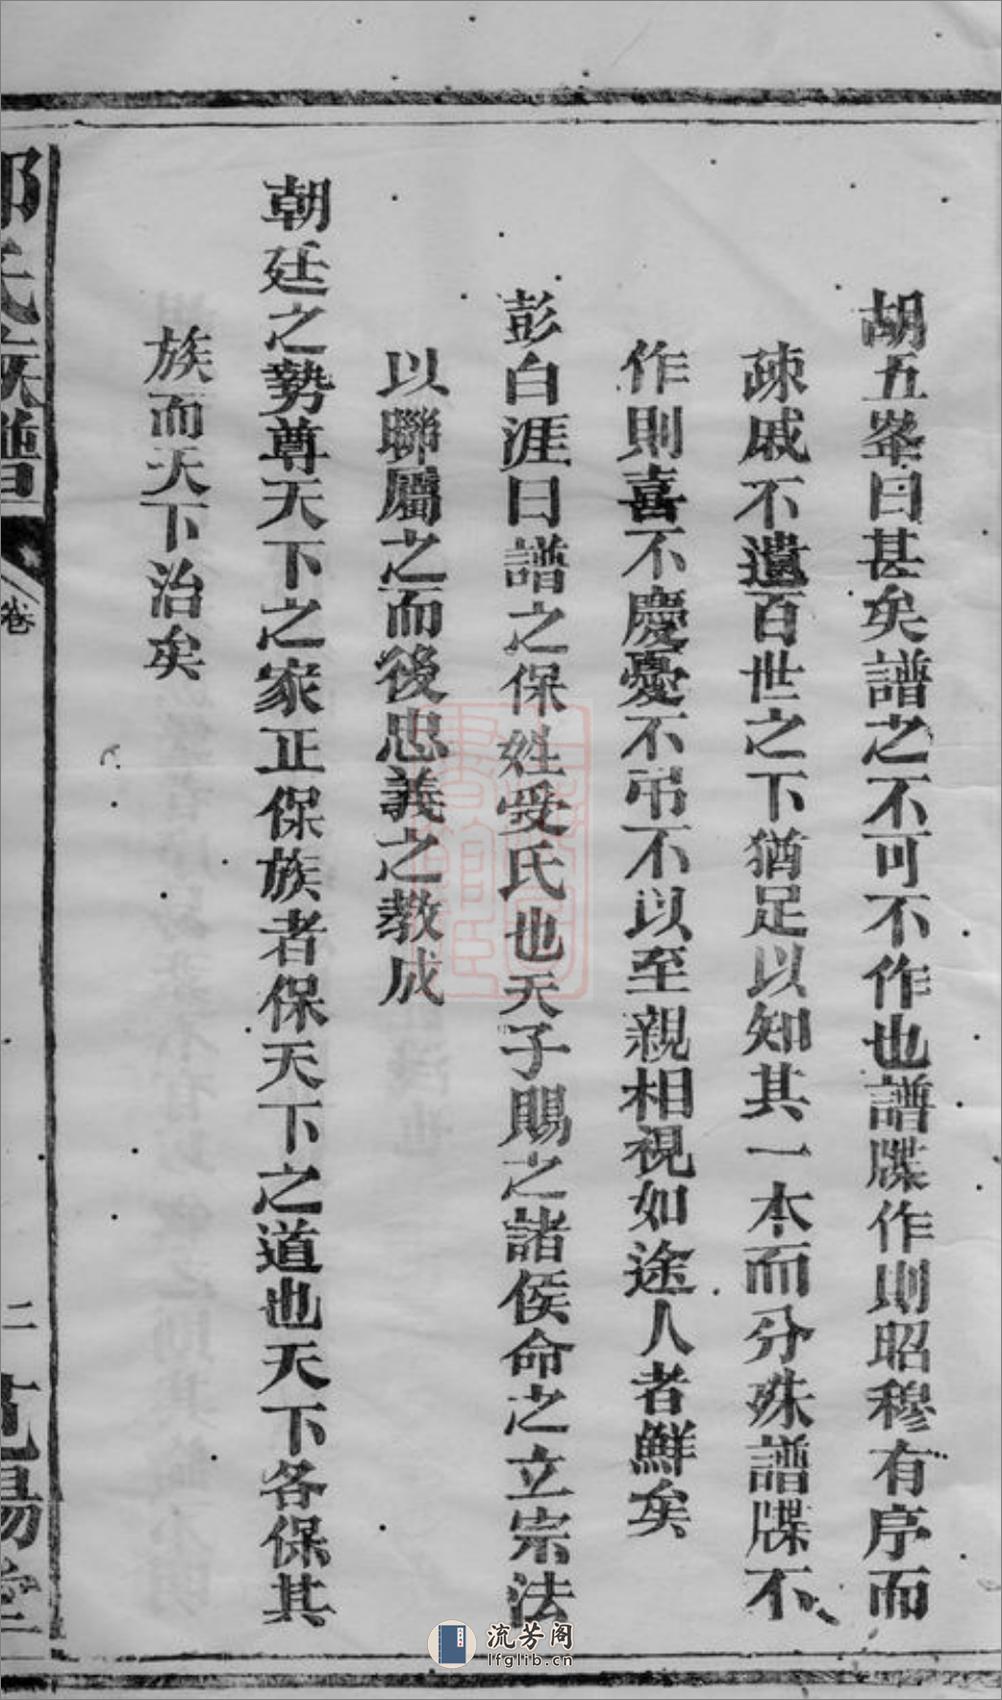 胡五峯曰甚矣譜之不可不作也譜牒作則昭穆有序而
疎戚不遺百世之下猶足以知其一本而分殊譜牒不
作則喜不慶憂不吊不以至親相視如途人者鮮矣
彭白涯曰譜之保姓受氏也天子賜之諸侯命之立宗法
以聯屬之而後忠義之教成
朝廷之勢尊天下之家正保族者保天下之道也天下各保其
族而天下治矣
氏族譜 卷 二 堂
流芳阁
lfglib.cn